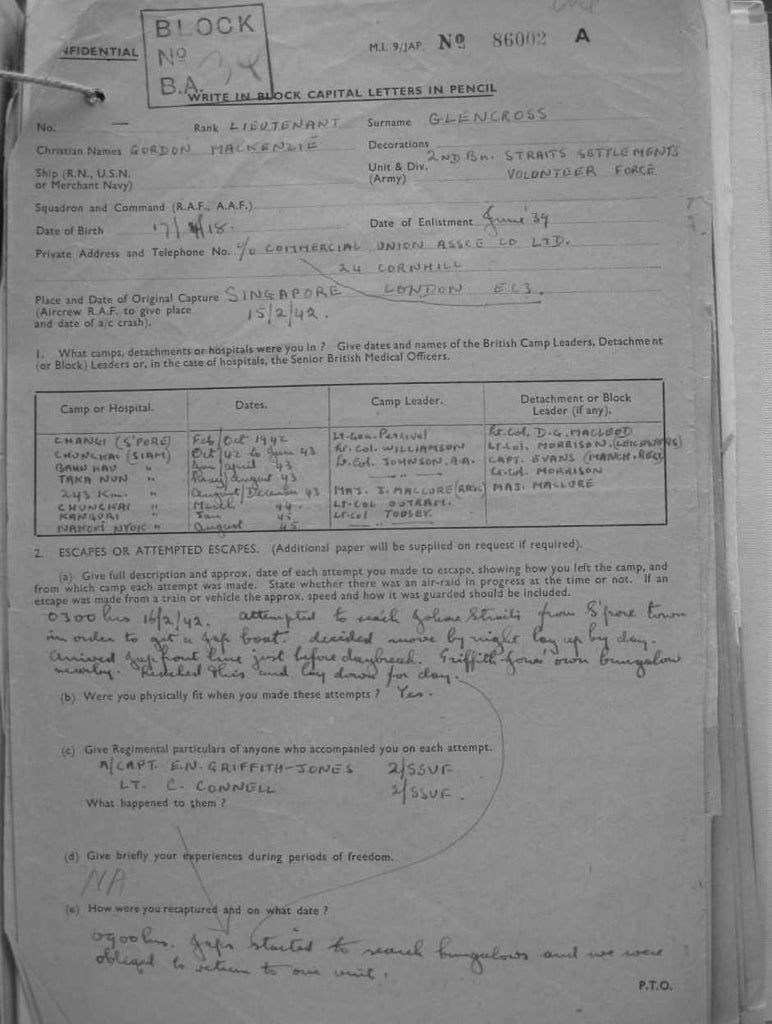 BLOCK
No
B.A. 34
NFIDENTIAL
M.I. 9/JAP. No 86002 A
WRITE IN BLOCK CAPITAL LETTERS IN PENCIL
No. — Rank LIEUTENANT Surname GLENCROSS
Christian Names GORDON MACKENZIE Decorations
Ship (R.N., U.S.N. or Merchant Navy) Unit & Div. (Army) 2ND Bn. STRAITS SETTLEMENTS
VOLUNTEER FORCE
Squadron and Command (R.A.F., A.A.F.)
Date of Birth 17/4/18. Date of Enlistment June '39
Private Address and Telephone No. c/o COMMERCIAL UNION ASSCE CO LTD.
24 CORNHILL
LONDON E.C.3.
Place and Date of Original Capture SINGAPORE
(Aircrew R.A.F. to give place 15/2/42.
and date of a/c crash).
1. What camps, detachments or hospitals were you in ? Give dates and names of the British Camp Leaders, Detachment
(or Block) Leaders or, in the case of hospitals, the Senior British Medical Officers.
Camp or Hospital. Dates. Camp Leader. Detachment or Block Leader (if any).
CHANGI (S'PORE) Feb/Oct 1942 Lt-Gen. Percival Lt. Col. D.G. MACLEOD
CHUNGKAI (SIAM) Oct 42 to Jan 43 Lt. Col. WILLIAMSON Lt-Col. MORRISON. (LEICESTERS)
BAHN KAU " Jan/April 43 Lt. Col. JOHNSON. A.A. CAPT. EVANS (MANCH. REGT)
TAKA NUN " May/August 43 —"— Lt-Col. MORRISON
243 Km. " August/December 43 MAJ. J. MACLURE (RASC) MAJ. MACLURE
CHUNGKAI " March 44 LT-COL OUTRAM.
KANBURI " Jan 45 Lt-Col TOOSEY.
NAKORN NYOK " August 45
2. ESCAPES OR ATTEMPTED ESCAPES. (Additional paper will be supplied on request if required).
(a) Give full description and approx. date of each attempt you made to escape, showing how you left the camp, and
from which camp each attempt was made. State whether there was an air-raid in progress at the time or not. If an
escape was made from a train or vehicle the approx. speed and how it was guarded should be included.
0300 hrs 16/2/42. attempted to reach Johore Straits from S'pore town
in order to get a Jap boat. decided move by night lay up by day.
Arrived Jap front line just before daybreak. Griffith-Jones' own bungalow
nearby. Reached this and lay down for day.
(b) Were you physically fit when you made these attempts ? Yes.
(c) Give Regimental particulars of anyone who accompanied you on each attempt.
A/CAPT. E.N. GRIFFITH-JONES 2/SSVF
LT. C. CONNELL 2/SSVF.
What happened to them ?
(d) Give briefly your experiences during periods of freedom.
NA
(e) How were you recaptured and on what date ?
0900 hrs. Japs started to search bungalows and we were
obliged to return to our unit.
P.T.O.